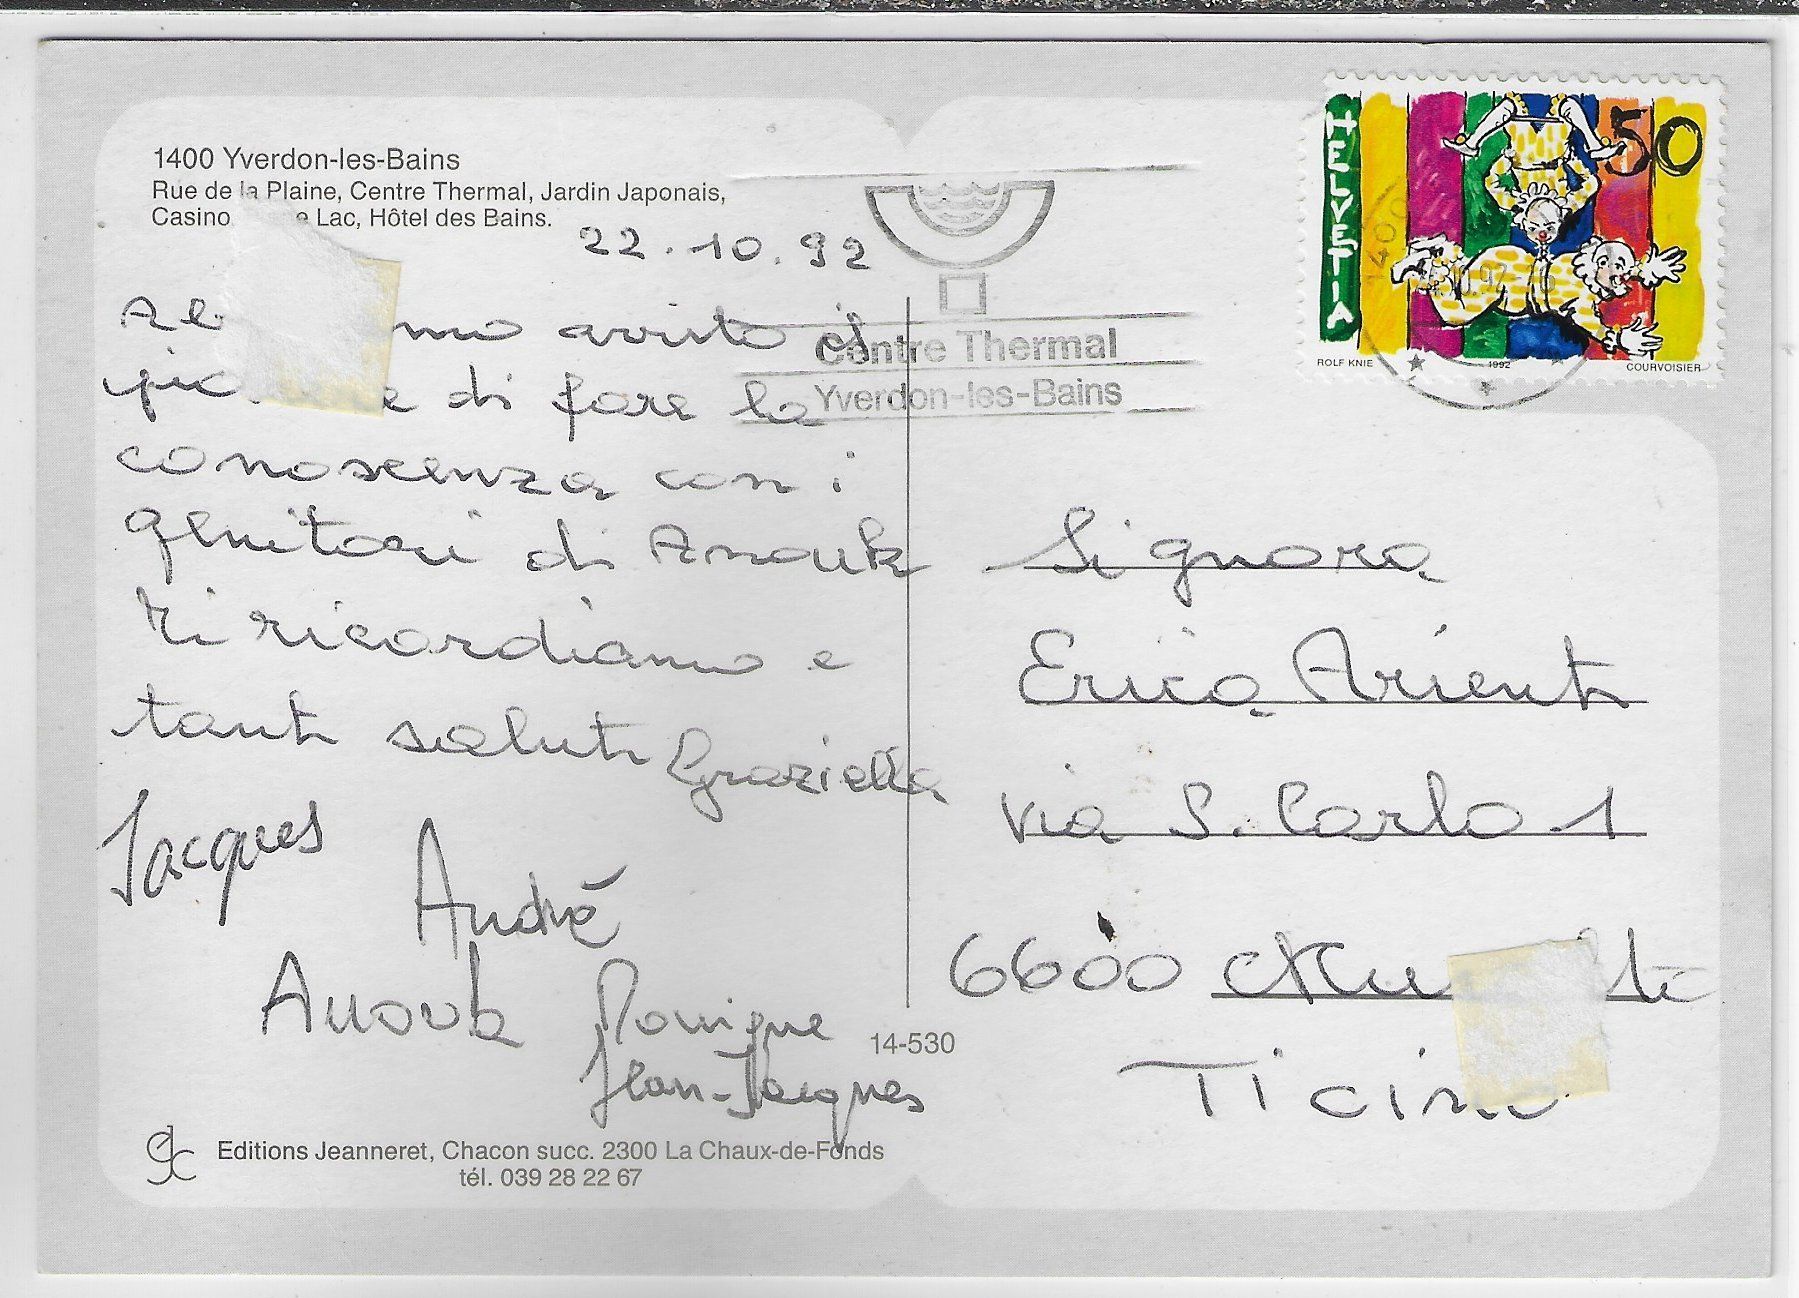 1400 Yverdon-les-Bains
Rue de la Plaine, Centre Thermal, Jardin Japonais,
Casino, Lac, Hôtel des Bains.
22.10.92
mo avuto il
di fare la
conoscenza con i
genitori di Anouk
Ti ricordiamo e
tanti saluti Graziella
Jacques
André
Anouk Monique
Jean-Jacques
Editions Jeanneret, Chacon succ. 2300 La Chaux-de-Fonds
tél. 039 28 22 67
14-530
Centre Thermal
Yverdon-les-Bains
HELVETIA
50
ROLF KNIE 1992 COURVOISIER
1400
Signora
Erica Arienti
via S. Carlo 1
6600
Ticino